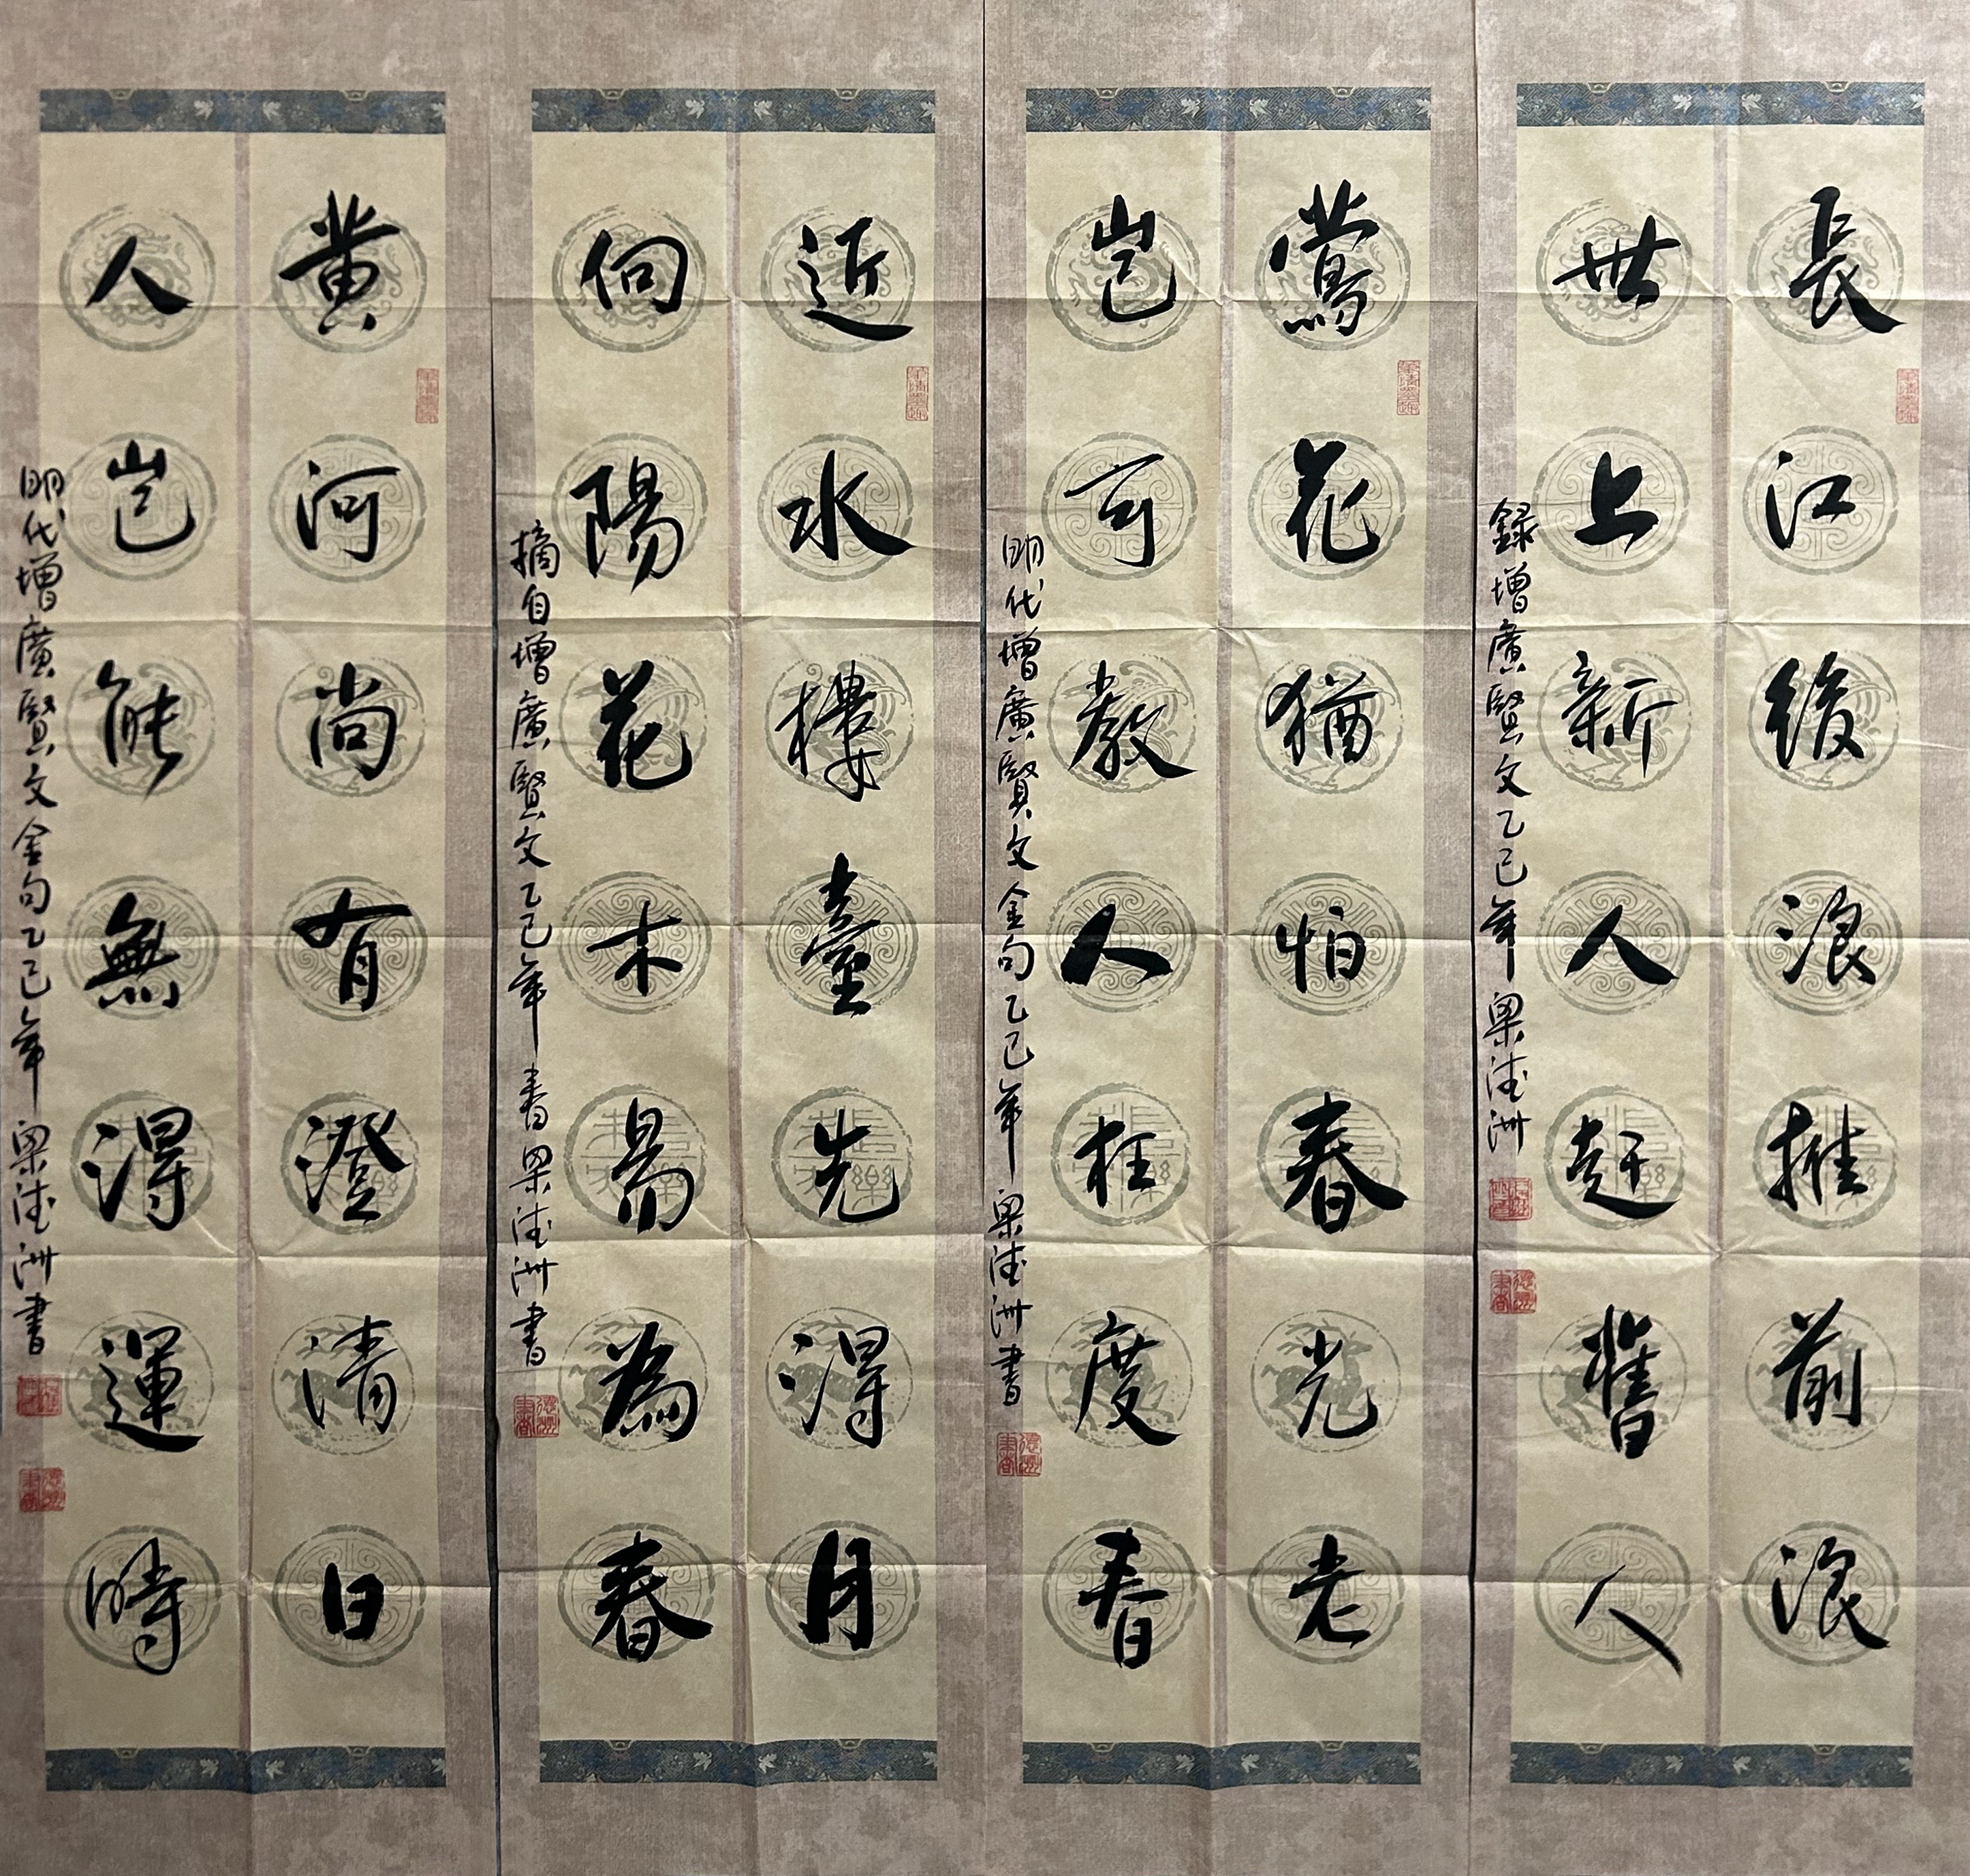 長江後浪推前浪
世上新人趕舊人
録增廣賢文乙巳年梁德洲
鶯花猶怕春光老
豈可教人枉度春
明代增廣賢文金句乙巳年梁德洲書
近水樓臺先得月
向陽花木易為春
摘自增廣賢文乙巳年春梁德洲書
黄河尚有澄清日
人豈能無得運時
明代增廣賢文金句乙巳年梁德洲書